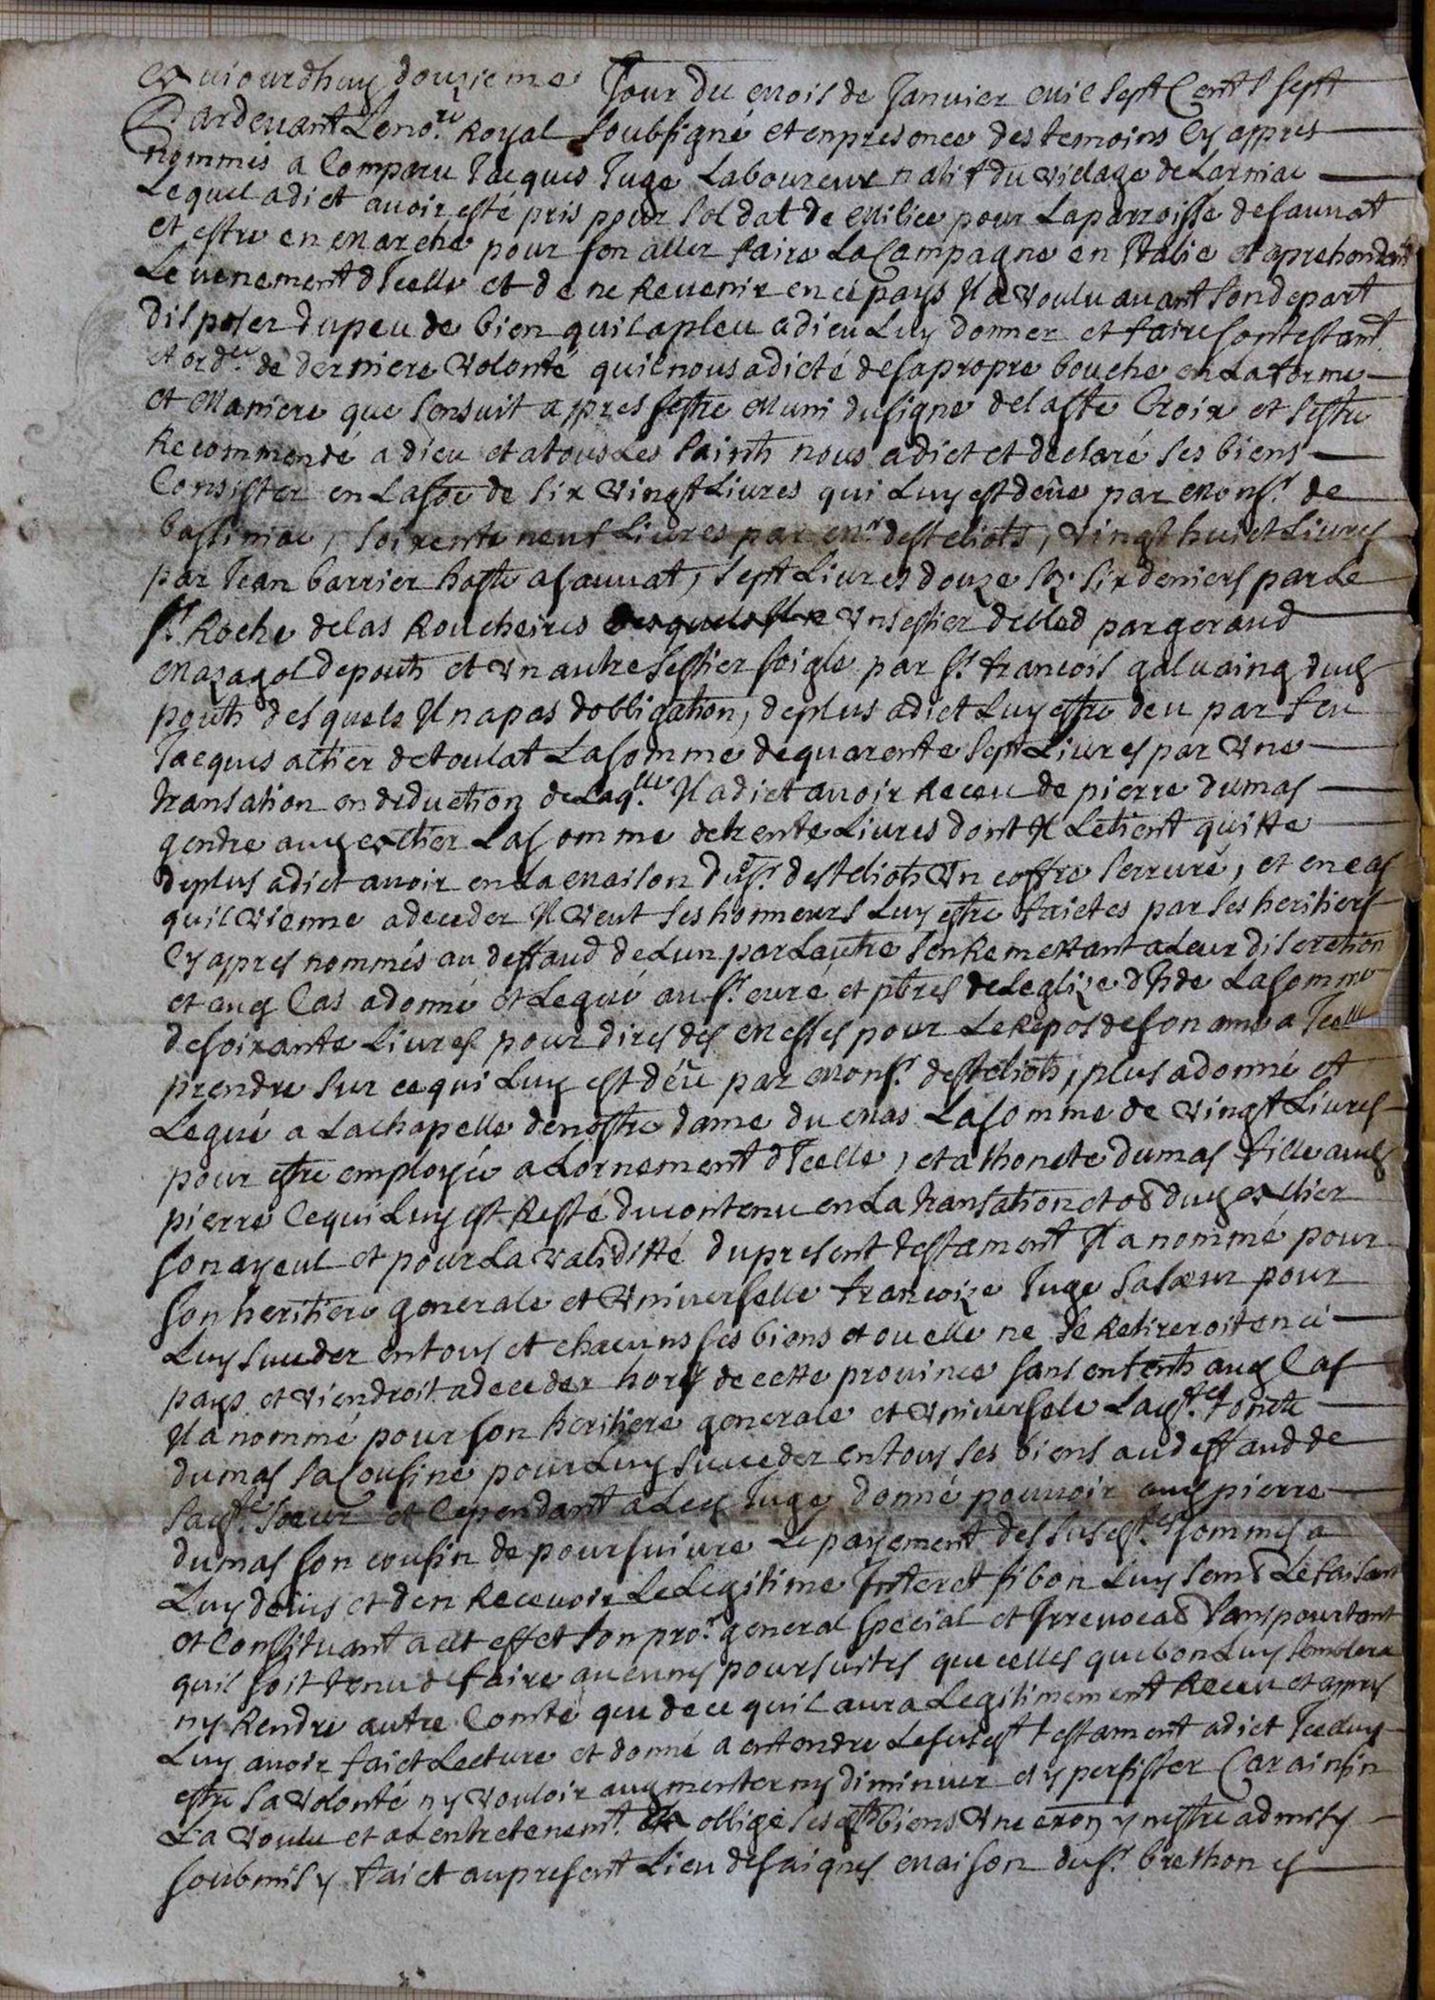 Aujourdhuy douzieme Jour du mois de Janvier mil sept Cents sept
Pardevant Leno.re Royal soubsigné et en presence des temoins Cy appres
nommés a Comparu Jacques Juge Laboureur natif du vilage de Larniac
Lequel a dict avoir esté pris pour soldat de milice pour La parroisse de sauvat
et estre en marche pour son aller faire La Campagne en Italie et aprehendant
Levenement dIcelle et de ne Revenir en cé pays Il a voulu avant son depart
disposer du peu de bien quil a pleu a dieu Luy donner et faire son testamt
et ord.ce de derniere volonté quil nous a dicté de sa propre bouche en La forme
et maniere que sensuit appres sestre muni du signe de la ste Croix et sestre
Recommendé a dieu et a tous Les saints nous a dict et declaré ses biens
Consister en La soe de six vingt Livres qui Luy est deüe par mons.r de
bassiniac, soixente neuf Livres par mr desteliots, vingt huict Livres
par Jean barrier hoste a sauvat, sept Livres douze sz six deniers par Le
sr. Roche de las Roucheires vn sestier de bled par geraud
mazagol de pouts et vn autre sestier soigle par sr. francois galvaing dud
pouts desquels Il na pas dobligation, de plus a dict Luy estre deu par feu
Jacques altier de foulat La somme de quarente sept Livres par vne
transation en deduction de Laq.lle Il a dict avoir Receu de pierre dumas
gendre aud altier La somme de trente Livres dont Il Le tient quitte
de plus a dict avoir en La maison dud sr. desteliots vn coffre serruré, et en cas
quil vienne a deceder Il veut ses honneurs Luy estre faictes par ses heritiers
Cy appres nommés au deffaud de Lun par Lautre sen Remettant a Leur discretion
et aud Cas a donné et Legué au sr. curé et pbres de Leglize dIde La somme
de soixante Livres pour dires des messes pour Le Repos de son ame a Icelle
prendre sur ce qui Luy est deü par mons.r desteliots, plus a donné et
Legué a La chapelle de nostre dame du mas La somme de vingt Livres
pour estre employée a Lornement dIcelle, et a thonete dumas fille aud
pierre Ce qui Luy est Resté du contenu en La transation et od dud altier
son ayeul et pour La validitté du present testament Il a nommé pour
son heritiere generale et vniverselle francoize Juge sa sœur pour
Luy succder en tous et chacuns ses biens et ou elle ne se Retireroit en cé
pays et viendroit a deceder hors de cette province sans enfents aud Cas
Il a nommé pour son heritiere generale et vniversele Lad. tonete
dumas sa Cousine pour Luy succeder en tous ses biens au deffaud de
sad. sœur et Cependant a Led Juge donné pouvoir aud pierre
dumas son cousin de poursuivre Le payement des susd. sommes a
Luy deües et den Recevoir Le Legitime Interet si bon Luy semb Le faisant
et Constituant a cet effet son pro.r general special et Irrevocab sans pourtant
quil soit tenu de faire aucunes poursuites que celles que bon Luy semblera
ny Rendre autre Comte que de ce quil aura Legitimement Receu et appres
Luy avoir faict Lecture et donné a entendre Le susd testament a dict Iceluy
estre sa volonté ny vouloir augmenter ny diminuer et y persister Car ainsin
La voulu et a Lentretenemt. obligé ses biens
soubmis y faict au present Lieu de saignes maison du sr. brethon es